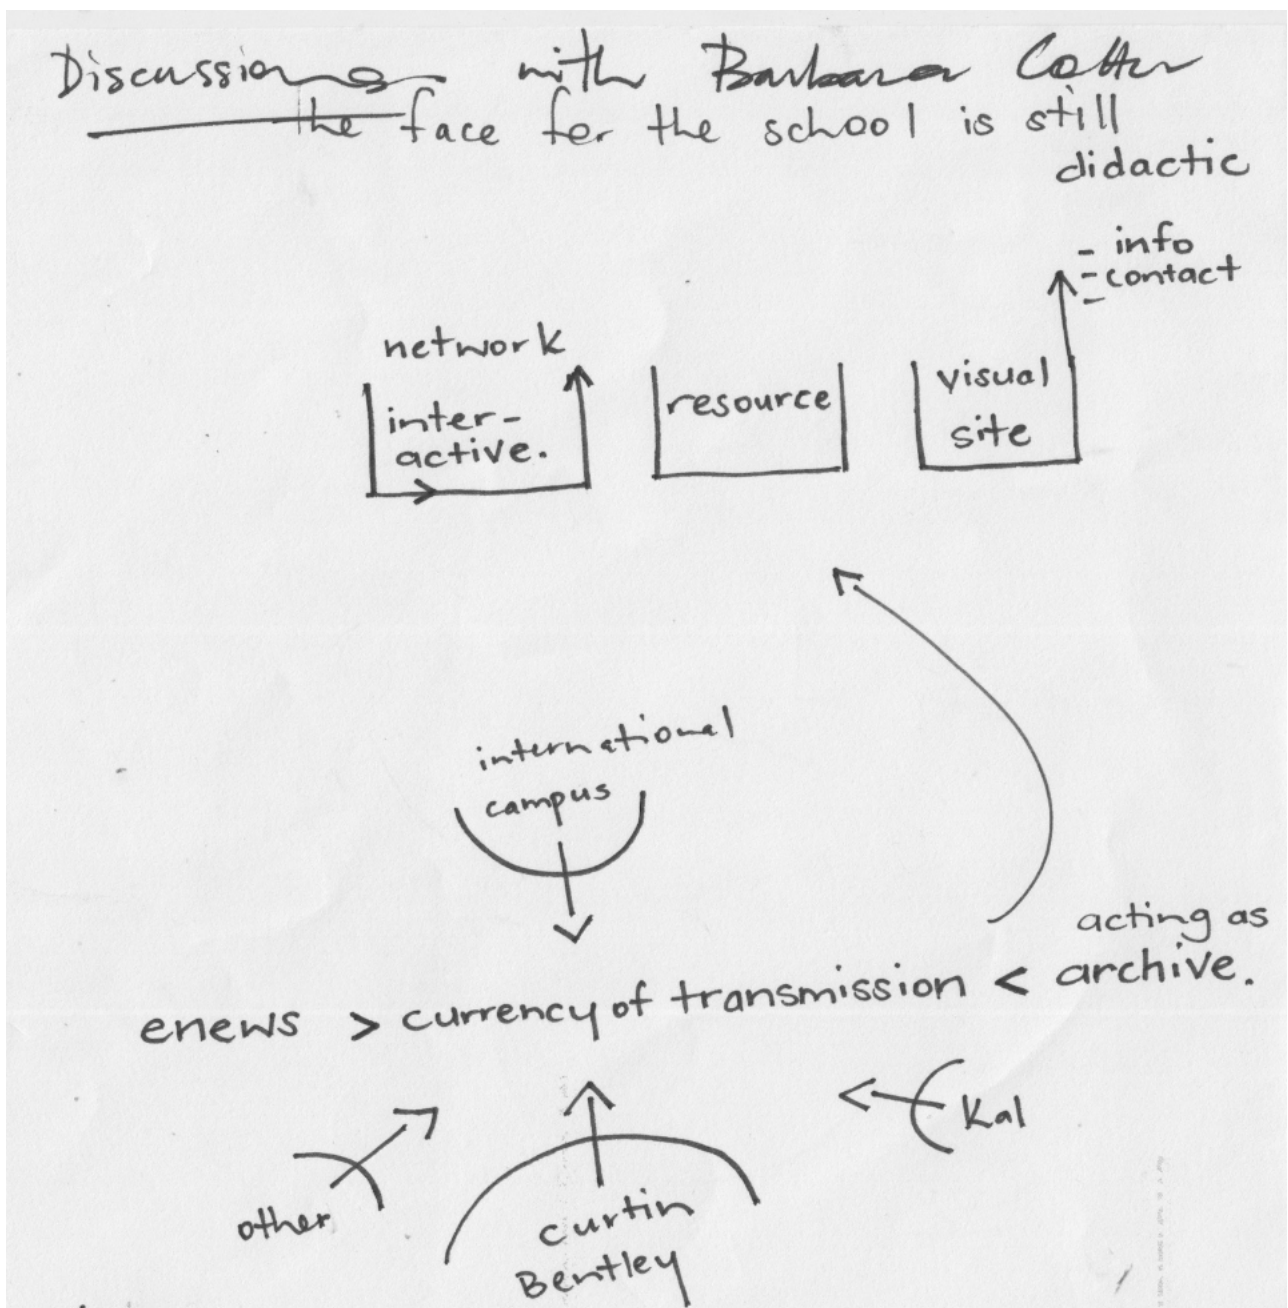 Discussions with Barbara Cotter
the face for the school is still
didactic
- info
- contact
-
network
inter-
active.
resource
visual
site
international
campus
acting as
enews > currency of transmission < archive.
Kal
other
curtin
Bentley